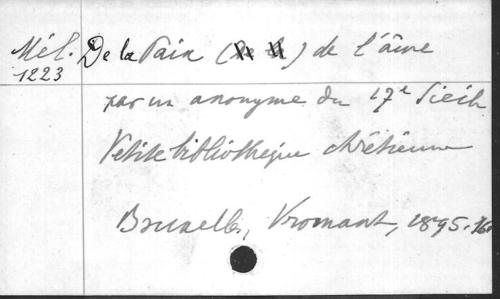 Mél. De la Paix ( ) de l'âme
1223
par un anonyme du 17e Siècle
Petite bibliothèque chrétienne
Bruxelles, Vromant, 1895.